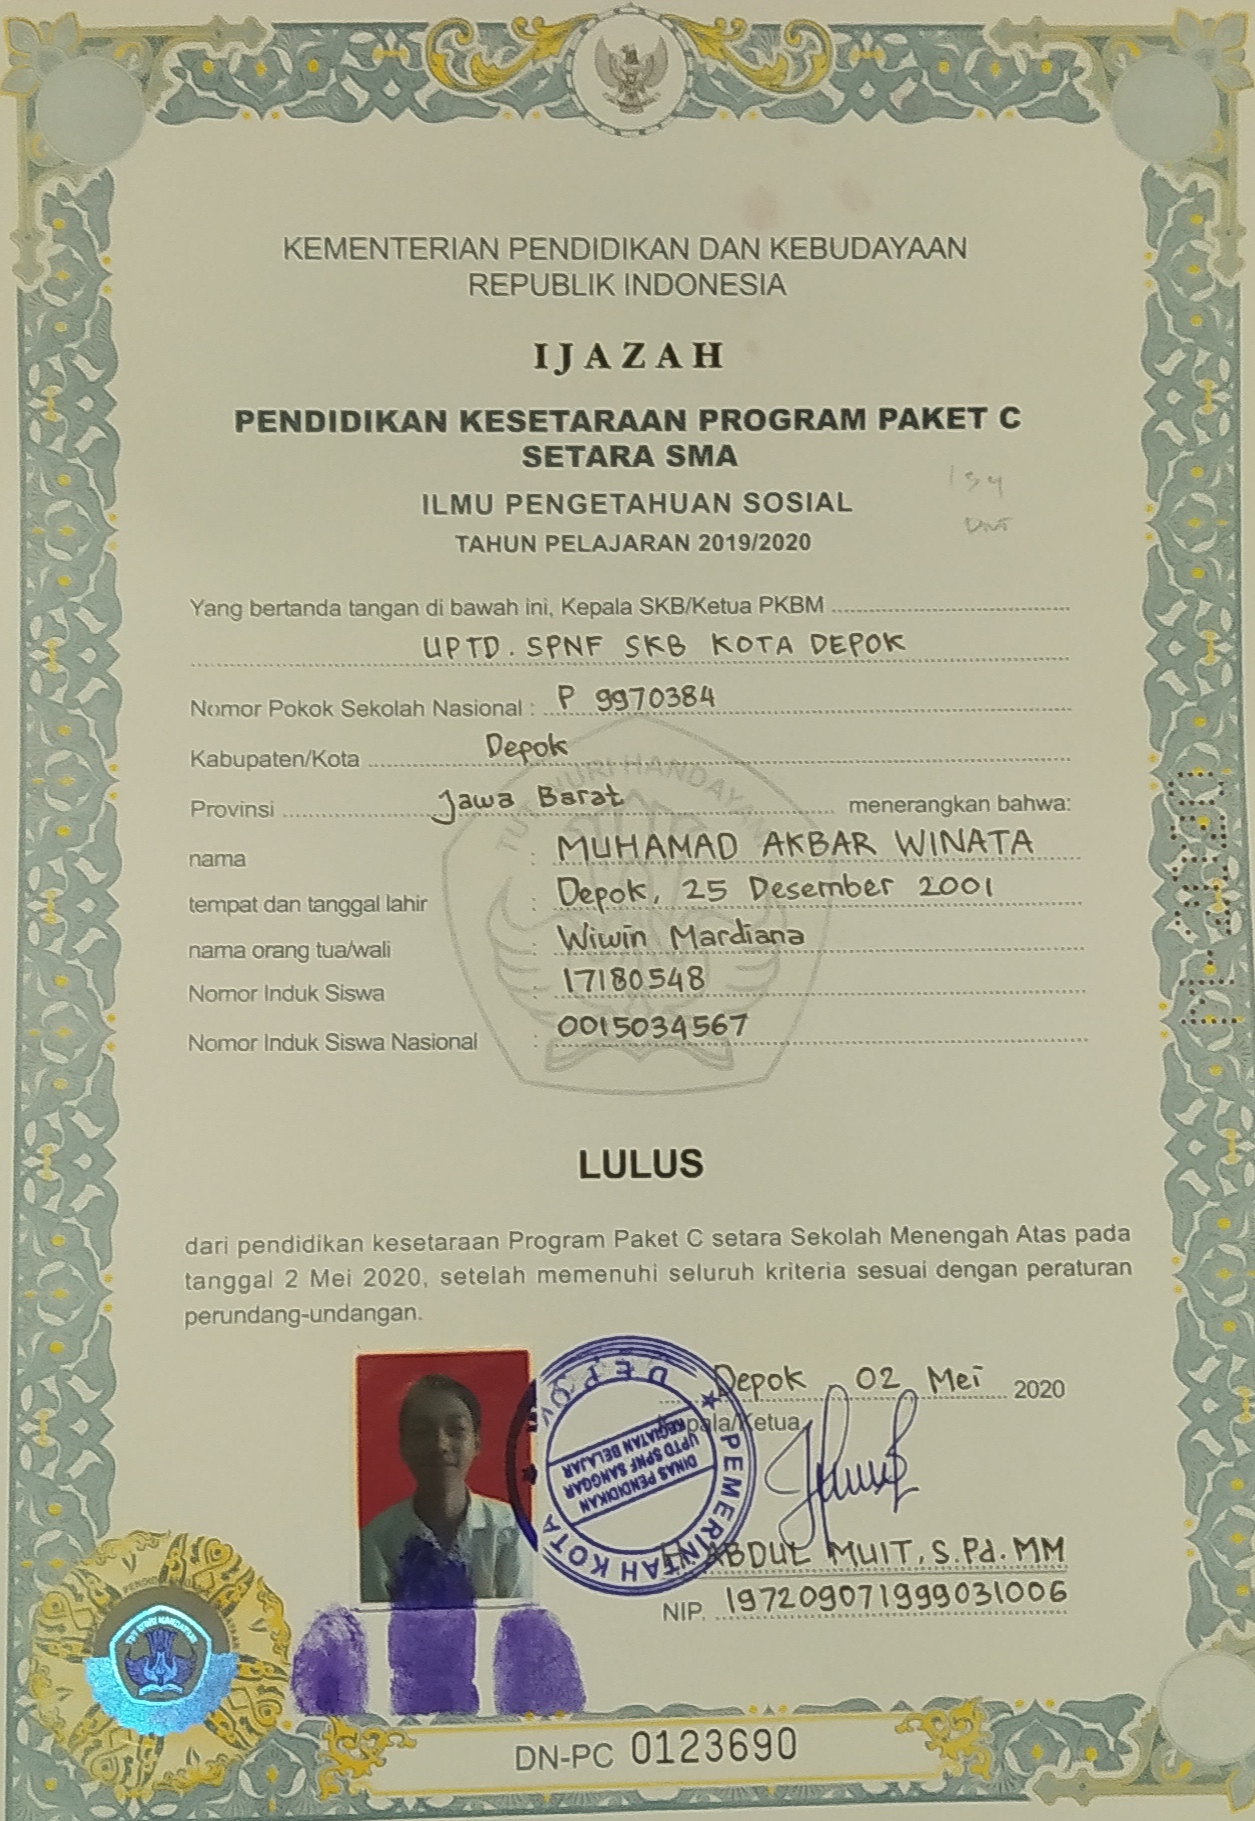 KEMENTERIAN PENDIDIKAN DAN KEBUDAYAAN
REPUBLIK INDONESIA
IJAZAH
PENDIDIKAN KESETARAAN PROGRAM PAKET C
SETARA SMA
ILMU PENGETAHUAN SOSIAL
TAHUN PELAJARAN 2019/2020
Yang bertanda tangan di bawah ini, Kepala SKB/Ketua PKBM
UPTD. SPNF SKB KOTA DEPOK
Nomor Pokok Sekolah Nasional : P 9970384
Kabupaten/Kota Depok
Provinsi Jawa Barat menerangkan bahwa:
nama : MUHAMAD AKBAR WINATA
tempat dan tanggal lahir : Depok, 25 Desember 2001
nama orang tua/wali : Wiwin Mardiana
Nomor Induk Siswa : 17180548
Nomor Induk Siswa Nasional : 0015034567
TUT WURI HANDAYANI
LULUS
dari pendidikan kesetaraan Program Paket C setara Sekolah Menengah Atas pada
tanggal 2 Mei 2020, setelah memenuhi seluruh kriteria sesuai dengan peraturan
perundang-undangan.
Depok, 02 Mei 2020
Kepala/Ketua,
PEMERINTAH KOTA DEPOK
DINAS PENDIDIKAN
UPTD SPNF SANGGAR
KEGIATAN BELAJAR
H. ABDUL MUIT, S.Pd. MM
NIP. 197209071999031006
TUT WURI HANDAYANI
DN-PC 0123690